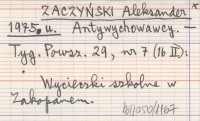 ZACZYŃSKI Aleksander x
1975. u. Antywychowawcy. —
Tyg. Powsz. 29, nr 7 (16 II):
Wycieczki szkolne w
Zakopanem.